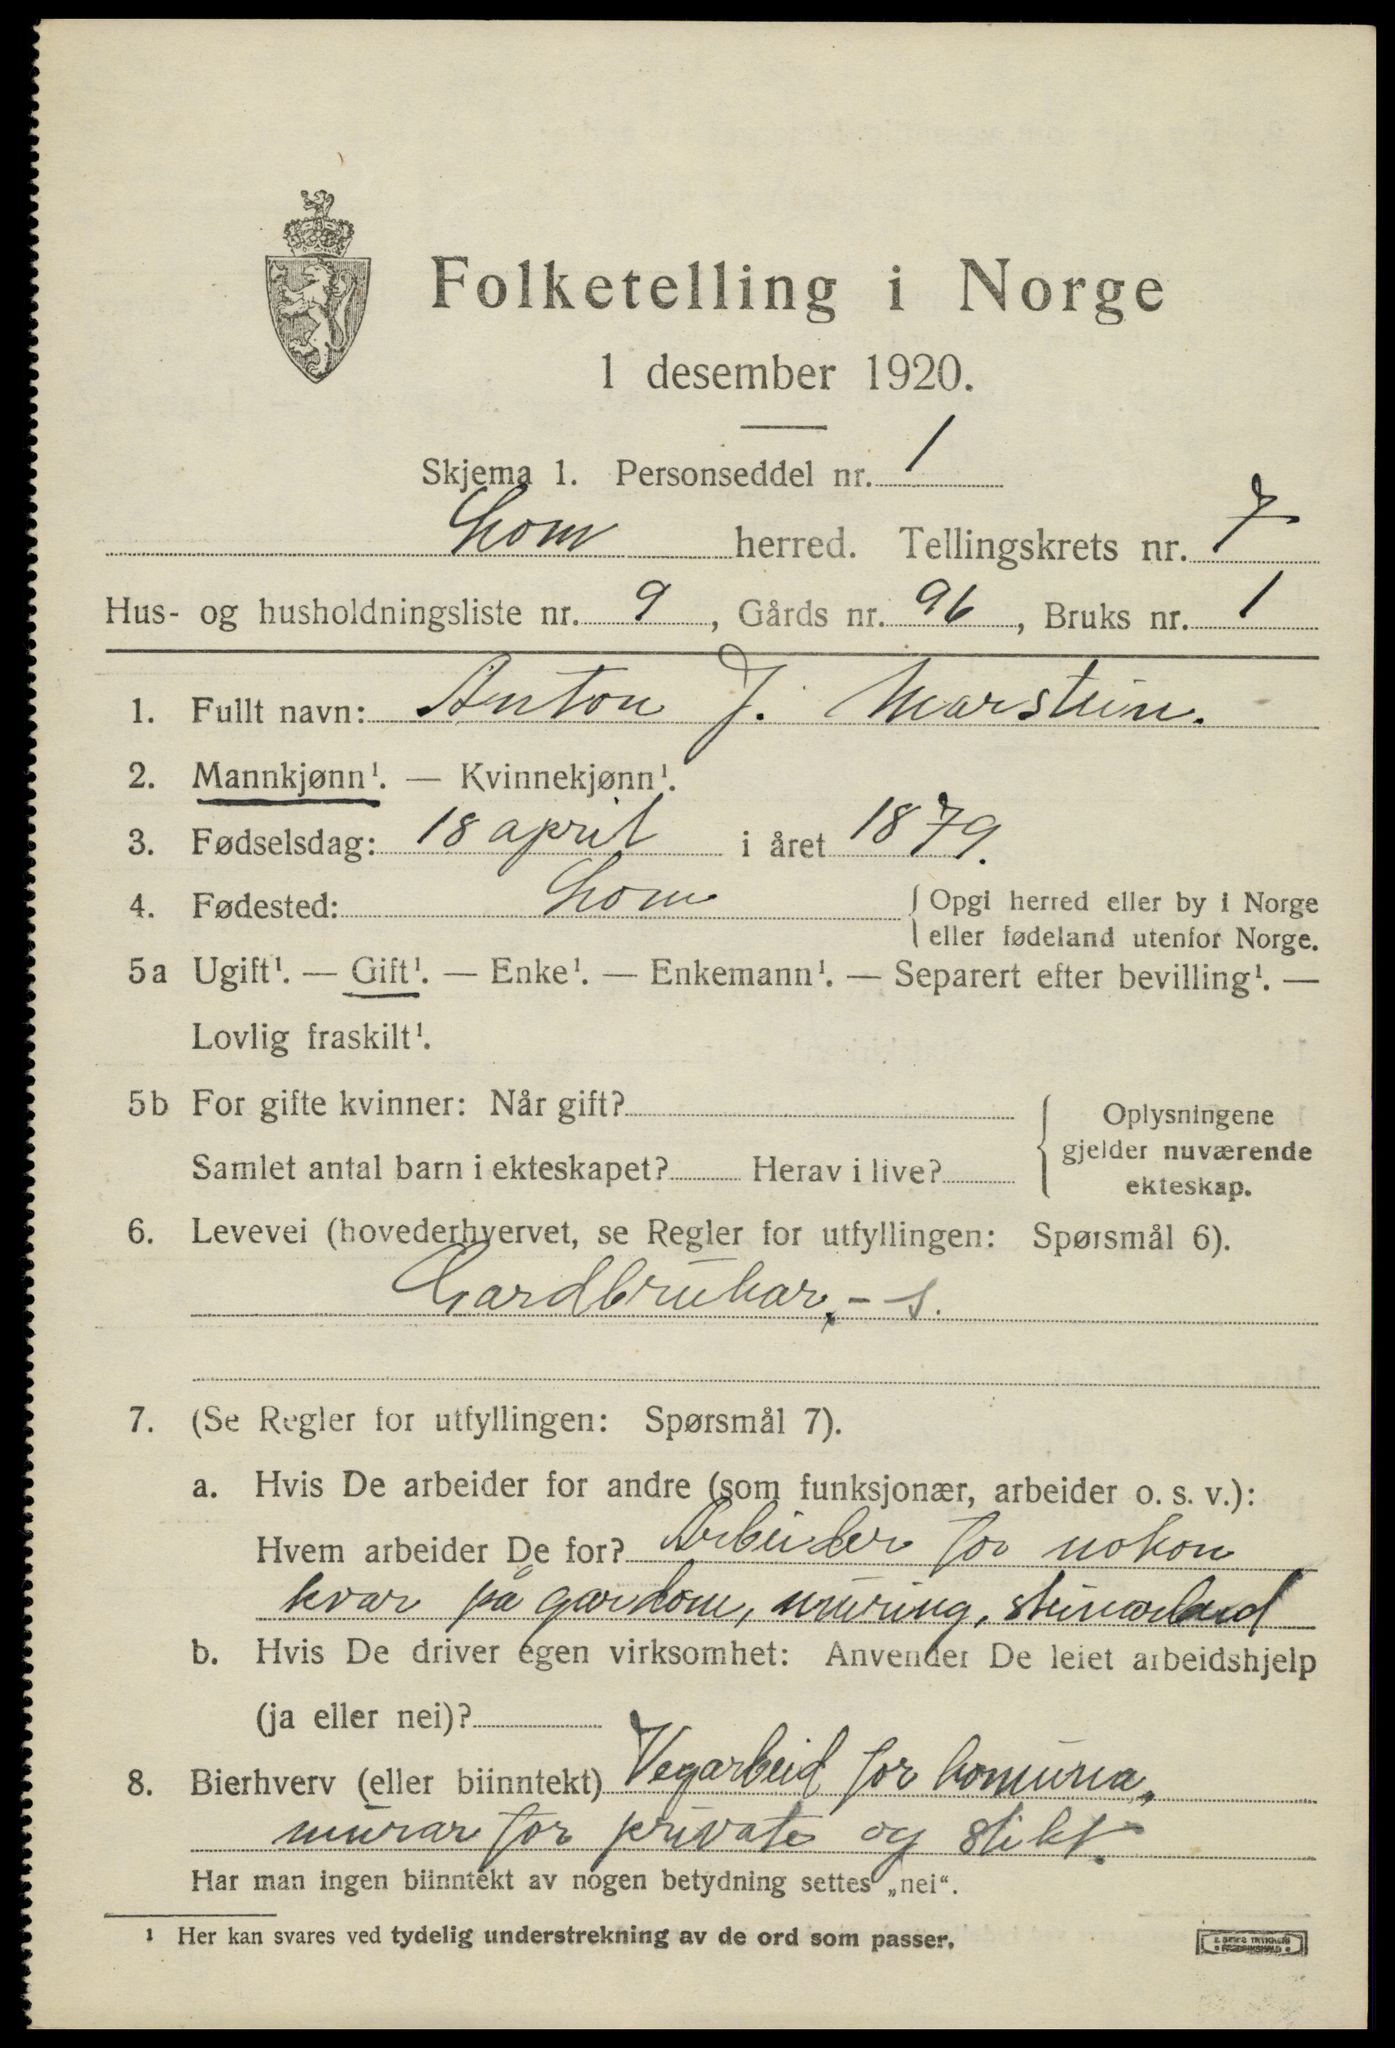 Folketelling i Norge
1 desember 1920.
Skjema 1. Personseddel nr. 1
Lom herred. Tellingskrets nr. 7
Hus- og husholdningsliste nr. 9, Gårds nr. 96, Bruks nr. 1
1. Fullt navn: Anton J. Marstein.
2. Mannkjønn¹. — Kvinnekjønn¹.
3. Fødselsdag: 18 april i året 1879.
4. Fødested: Lom { Opgi herred eller by i Norge
eller fødeland utenfor Norge.
5a Ugift¹. — Gift¹. — Enke¹. — Enkemann¹. — Separert efter bevilling¹. —
Lovlig fraskilt¹.
5b For gifte kvinner: Når gift?
Samlet antal barn i ekteskapet? Herav i live?
Oplysningene
gjelder nuværende
ekteskap.
6. Levevei (hovederhvervet, se Regler for utfyllingen: Spørsmål 6).
Gardbrukar, - s.
7. (Se Regler for utfyllingen: Spørsmål 7).
a. Hvis De arbeider for andre (som funksjonær, arbeider o. s. v.):
Hvem arbeider De for? Arbeider for nokon
kvar på gardom, muring, steinarbeid
b. Hvis De driver egen virksomhet: Anvender De leiet arbeidshjelp
(ja eller nei)?
8. Bierhverv (eller biinntekt) Vegarbeid for komuna,
murar for private og slikt.
Har man ingen biinntekt av nogen betydning settes „nei“.
¹ Her kan svares ved tydelig understrekning av de ord som passer.